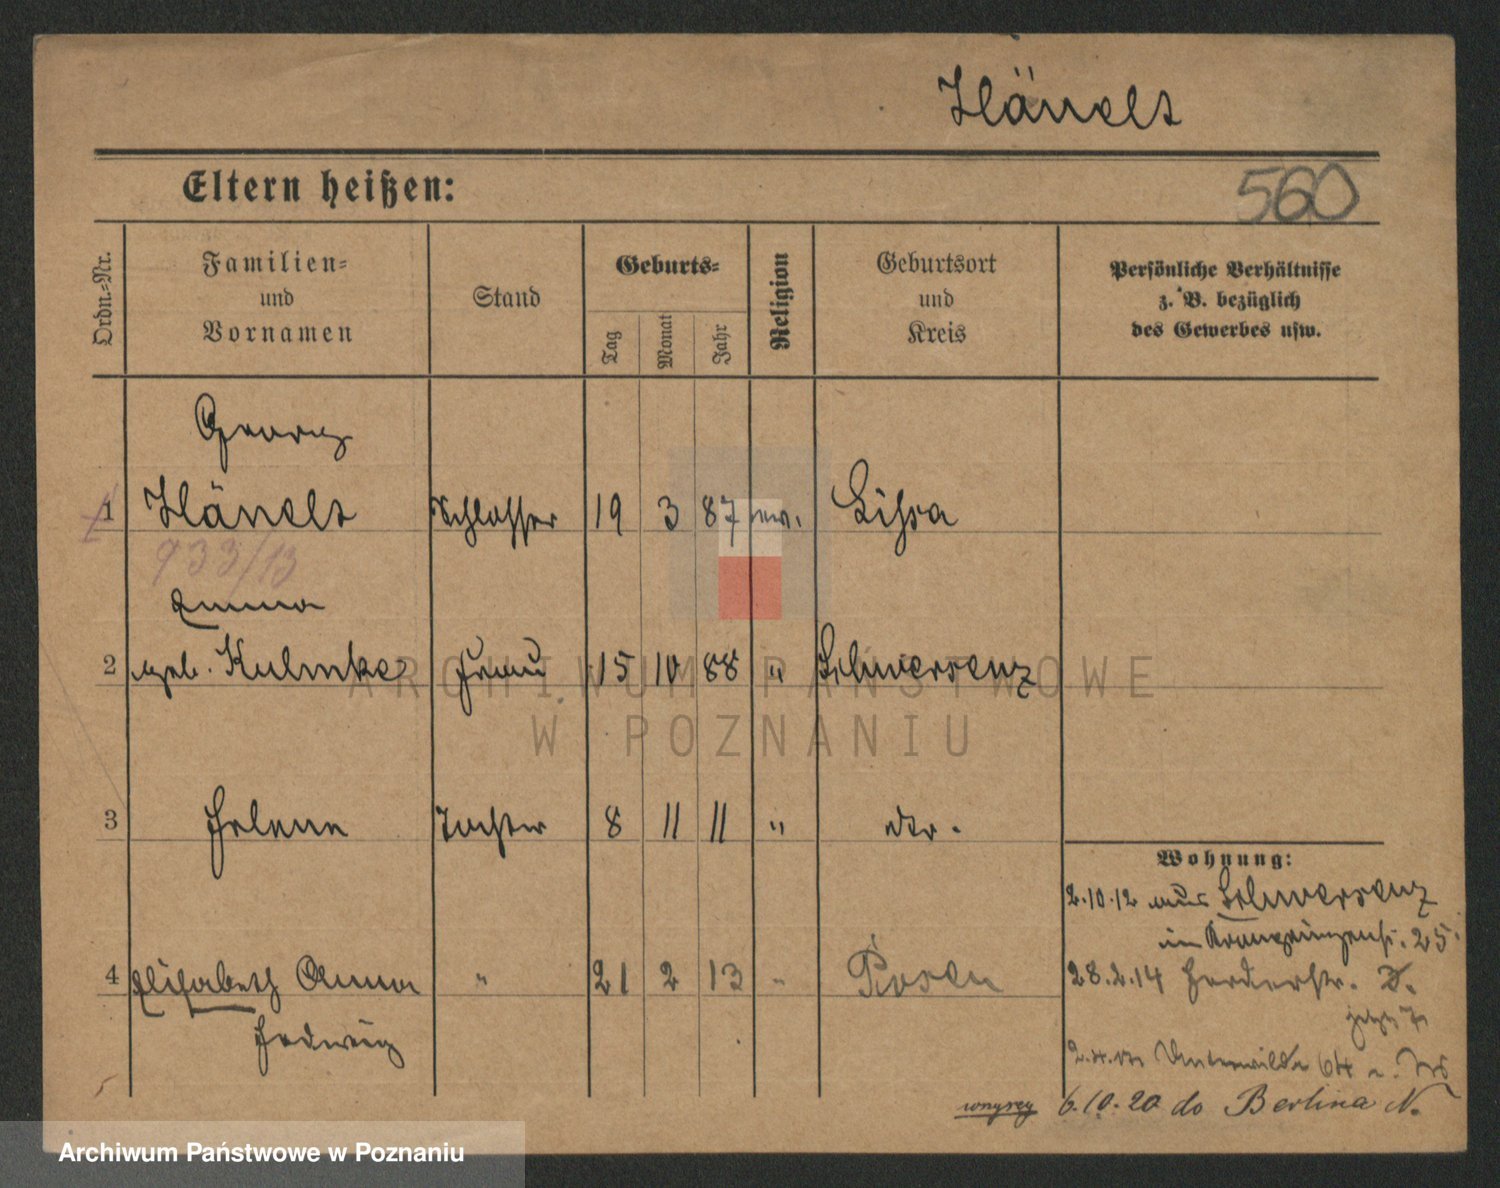 Hänelt
Eltern heißen:
560
Ordn.-Nr.
Familien-
und
Vornamen
Stand
Geburts-
Tag
Monat
Jahr
Religion
Geburtsort
und
Kreis
Persönliche Verhältnisse
z. B. bezüglich
des Gewerbes usw.
Georg
1 Hänelt Schlosser 19 3 87 ev. Lissa
933/13
Emma
2 geb. Kulmke Frau 15 10 88 " Schwersenz
3 Helene Tochter 8 11 11 " dto.
Wohnung:
2.10.12 aus Schwersenz
in Kronprinzenstr. 25
4 Elisabeth Anna " 21 2 13 " Posen
28.2.14 Herderstr. 2.
jetzt 7a
Hedwig
64
6.10.20 do Berlina N.
ARCHIWUM PAŃSTWOWE
W POZNANIU
Archiwum Państwowe w Poznaniu